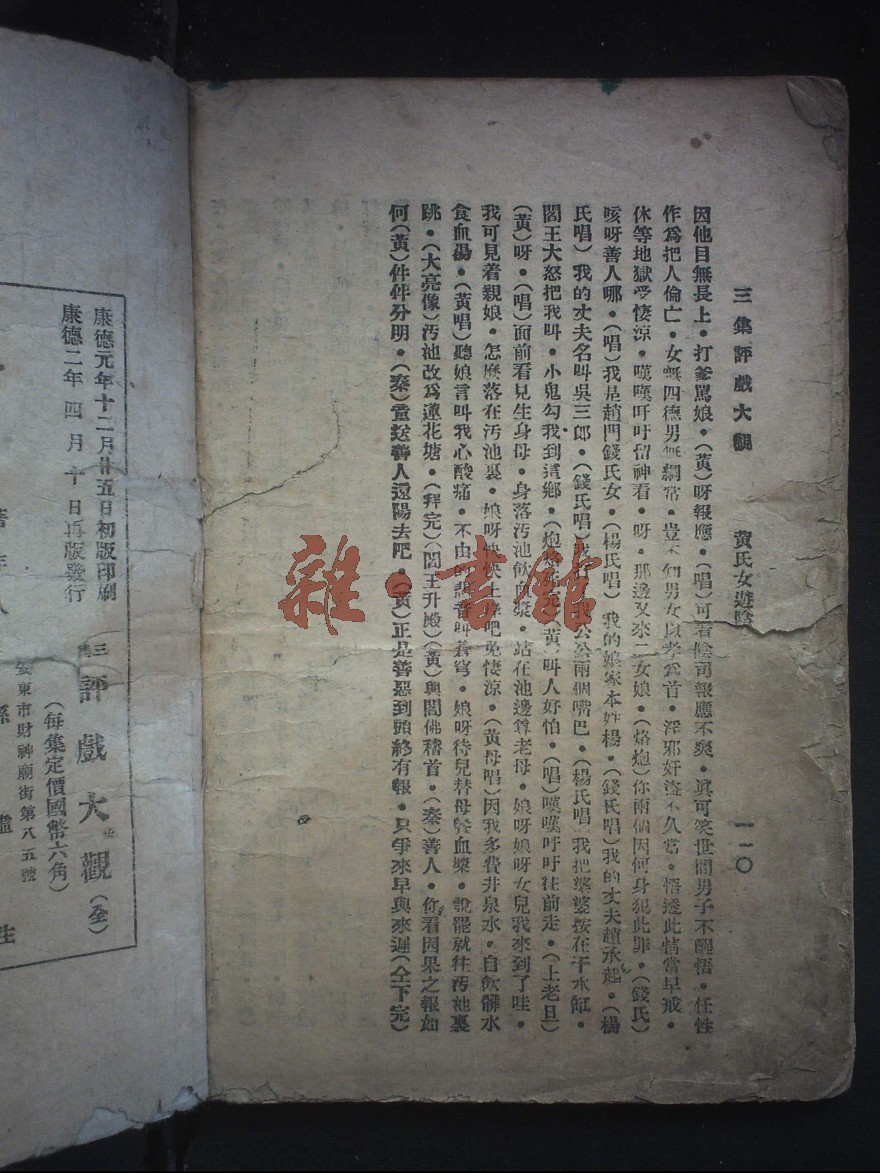 三集評戲大觀 黃氏女遊陰 一一〇
因他目無長上・打爹罵娘・(黃)呀報應・(唱)可看陰司報應不爽・眞可笑世間男子不醒悟・任性
作爲把人倫亡・女無四德男無綱常・豈不知男女以孝爲首・淫邪奸盜不久常・悟透此情當早戒・
休等地獄受悽涼・嘆嘆吁吁留神看・呀・那邊又來二女娘・(烙炮)你兩個因何身犯此罪・(錢氏)
咳呀善人哪・(唱)我是趙門錢氏女・(楊氏唱)我的娘家本姓楊・(錢氏唱)我的丈夫趙承起・(楊
氏唱)我的丈夫名叫吳三郎・(錢氏唱)我打了我公公兩個嘴巴・(楊氏唱)我把婆婆按在千水缸・
閻王大怒把我叫・小鬼勾我到這鄉・(炮烙 完)(黃)叫人好怕・(唱)嘆嘆吁吁往前走・(上老旦)
(黃)呀・(唱)面前看見生身母・身落汚池飲血漿・站在池邊尊老母・娘呀娘呀女兒我來到了哇・
我可見着親娘・怎麼落在汚池裏・娘呀快快上岸吧免悽涼・(黃母唱)因我多費井泉水・自飲髒水
食血湯・(黃唱)聽娘言叫我心酸痛・不由的悲音叫蒼穹・娘呀待兒替母餐血漿・說罷就往汚池裏
跳・(大亮像)汚池改爲蓮花塘・(拜完)(閻王升殿)(黃)與閻佛稽首・(秦)善人・你看因果之報如
何(黃)件件分明・(秦)童送善人還陽去吧・(黃)正是善惡到頭終有報・只爭來早與來遲(仝下完)
康德元年十二月廿五日初版印刷
康德二年四月十日再版發行
三集 評戲大觀(全)
(每集定價國幣六角)
安東市財神廟街第八五號